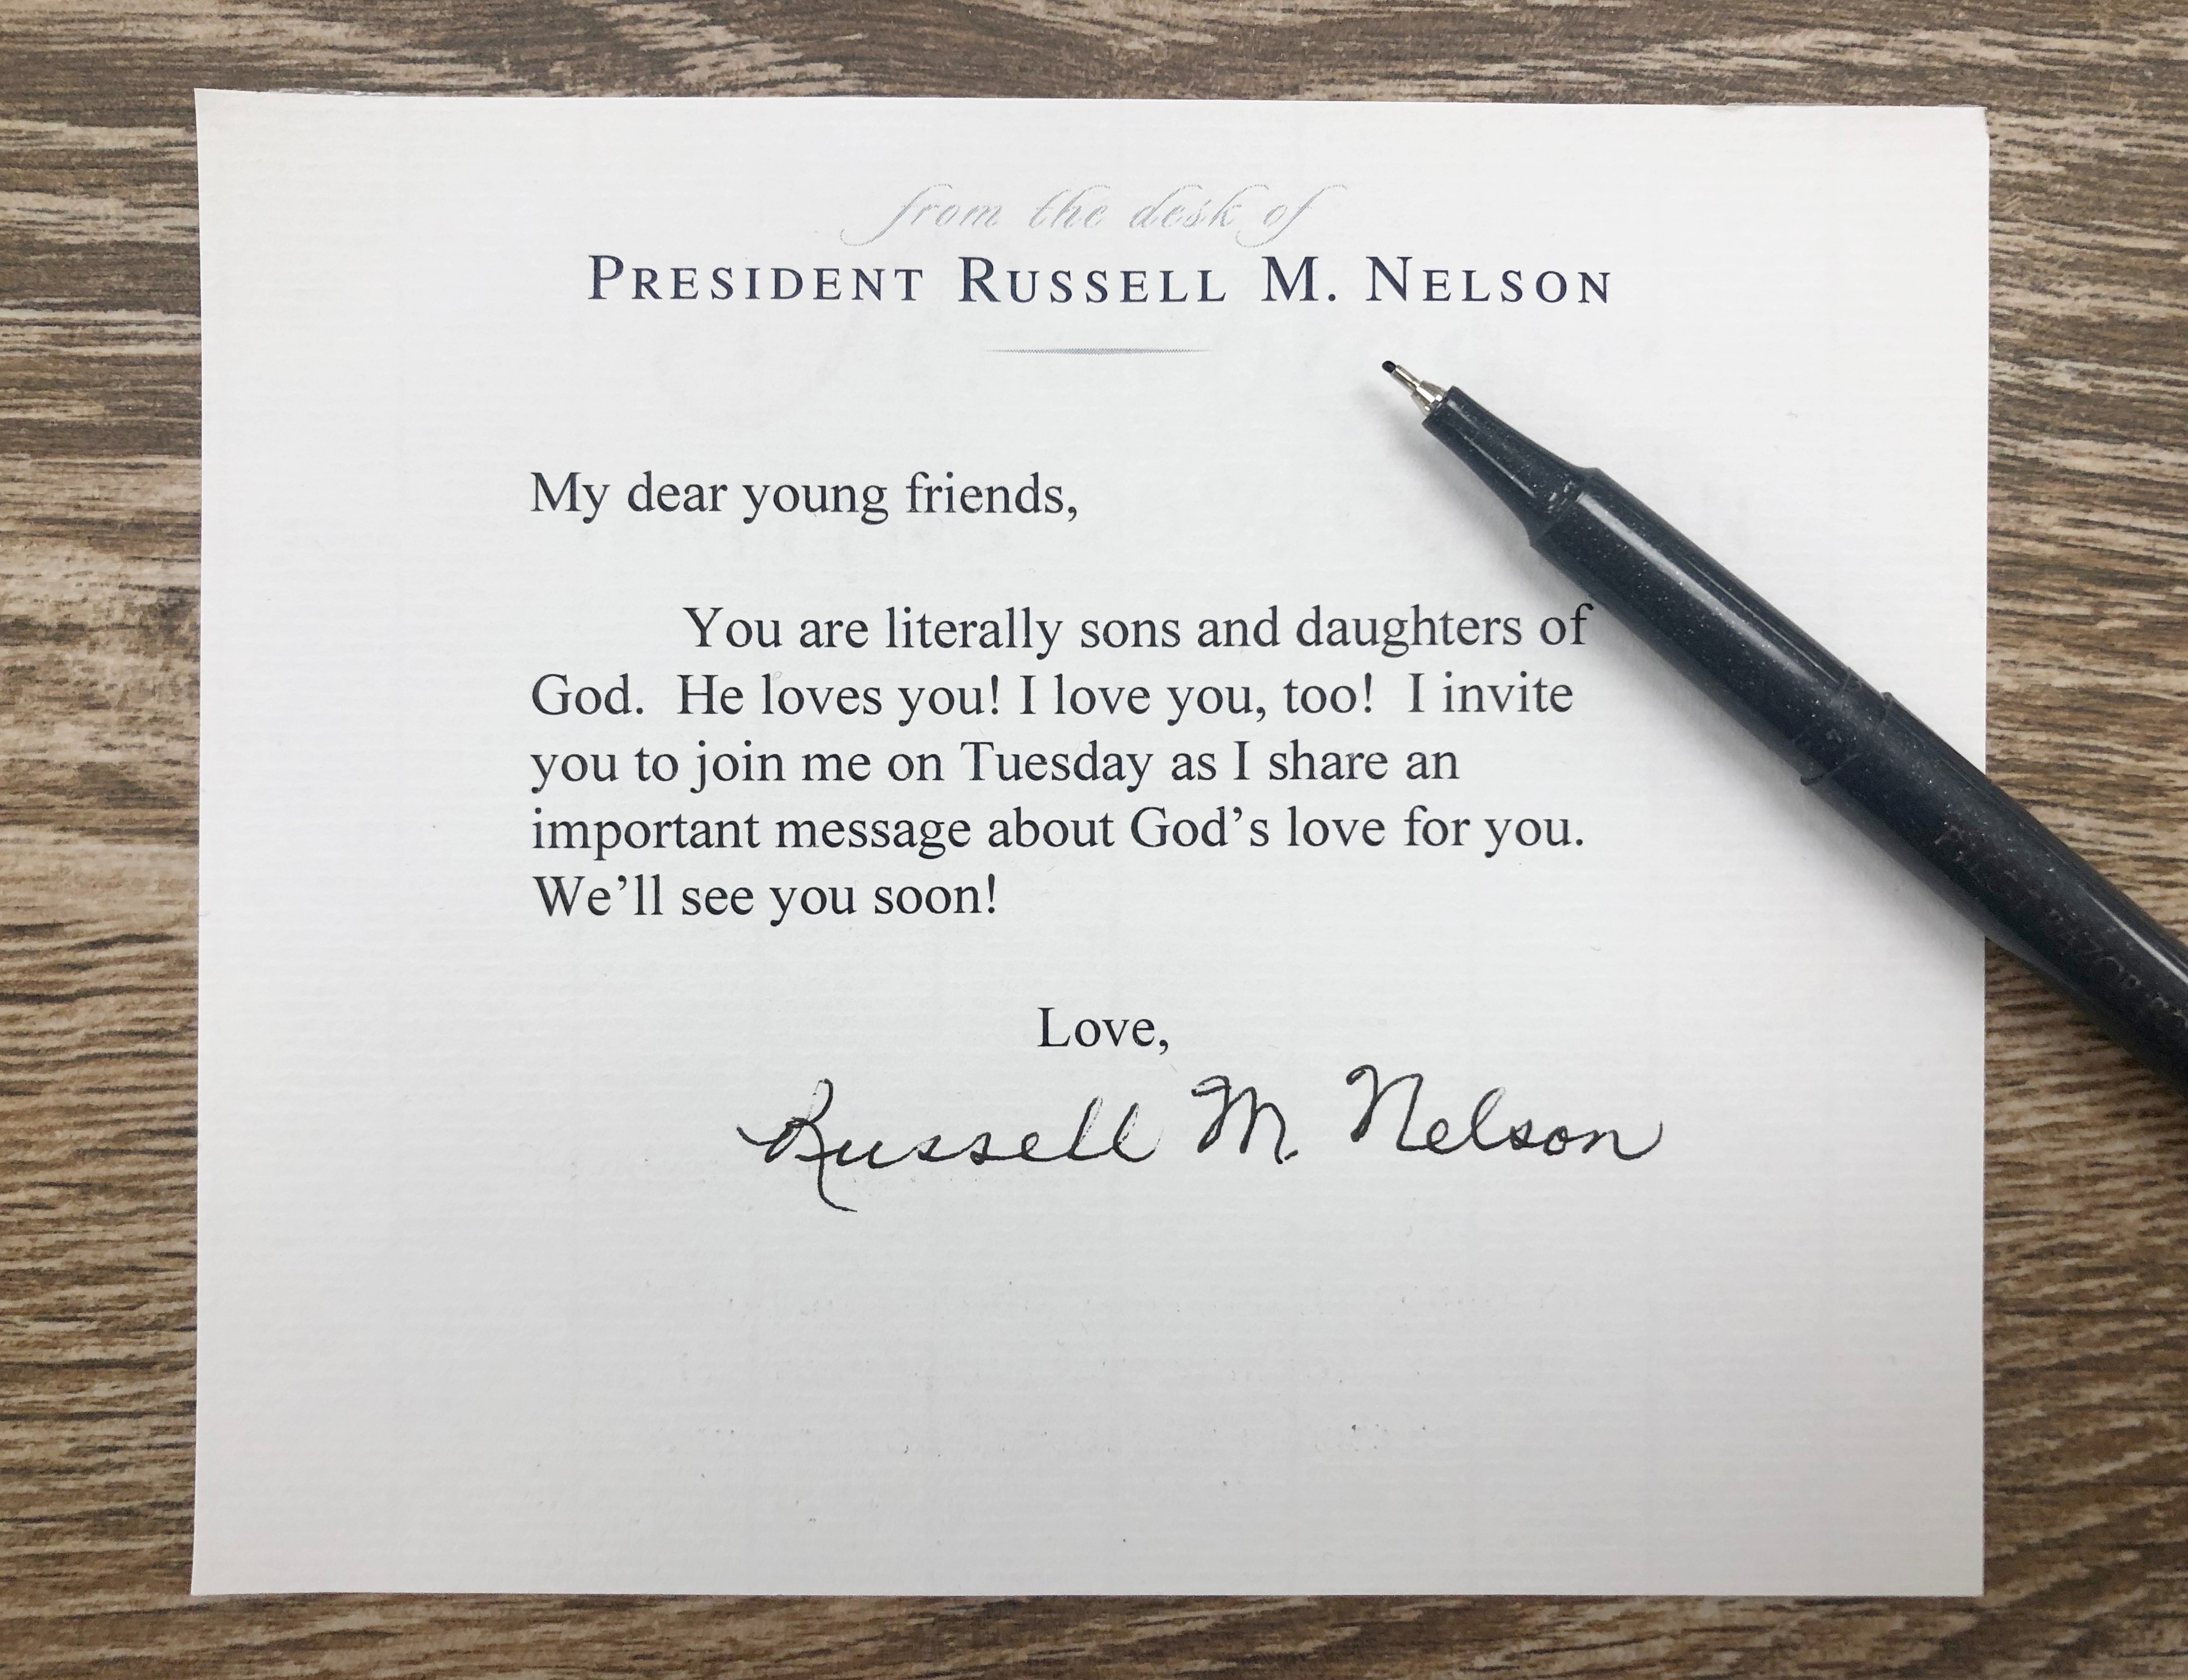 from the desk of
PRESIDENT RUSSELL M. NELSON
My dear young friends,
You are literally sons and daughters of
God.  He loves you! I love you, too!  I invite
you to join me on Tuesday as I share an
important message about God’s love for you.
We’ll see you soon!
Love,
Russell M. Nelson